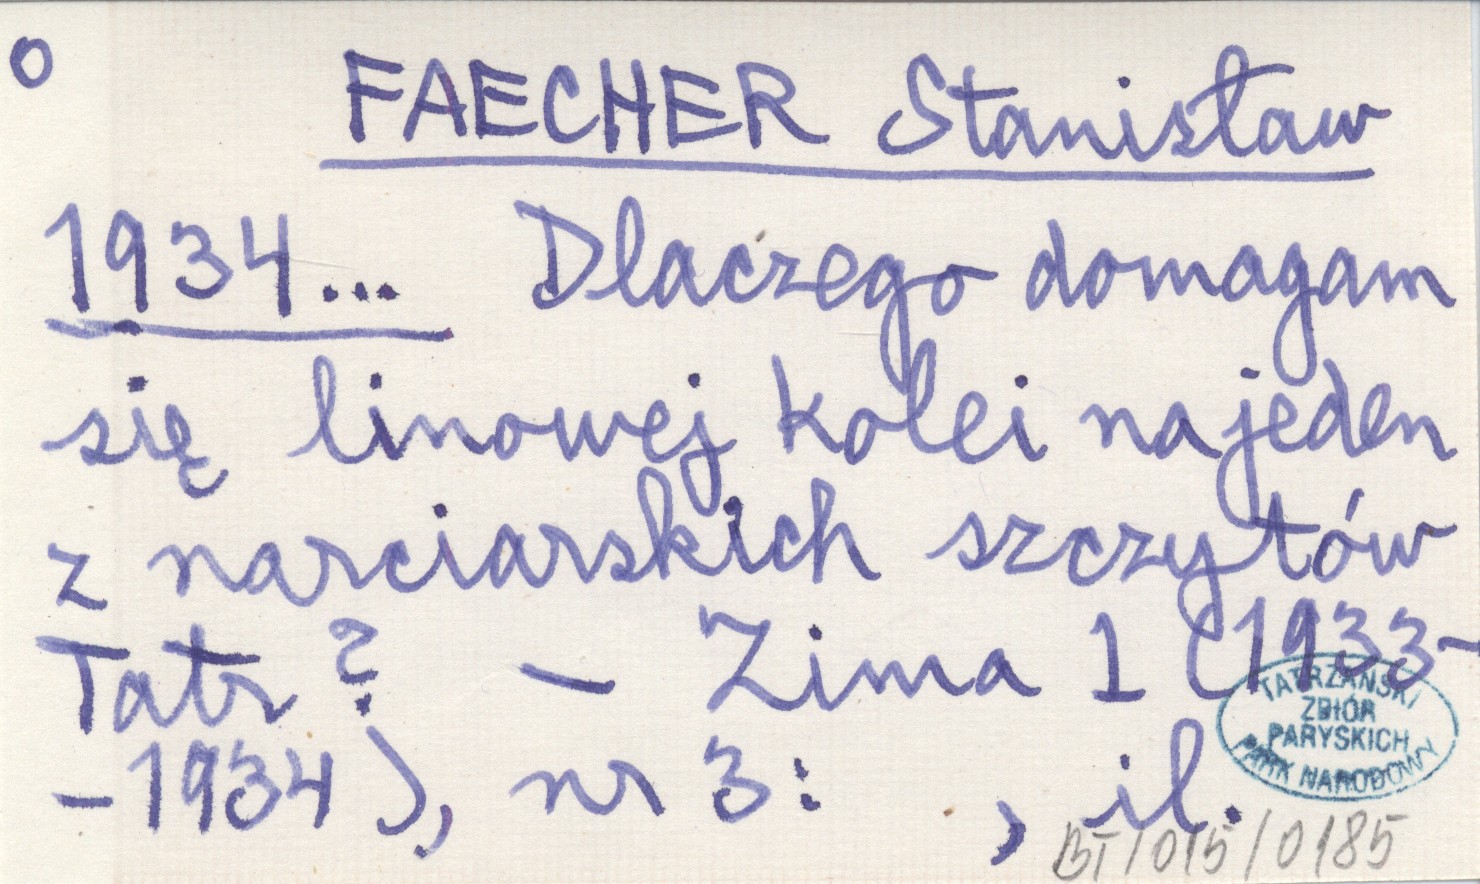 o
FAECHER Stanisław
1934... Dlaczego domagam
się linowej kolei na jeden
z narciarskich szczytów
Tatr? – Zima 1 (1933-
-1934), nr 3: , il.
TATRZAŃSKI
ZBIÓR
PARYSKICH
PARK NARODOWY
BT/015/0185